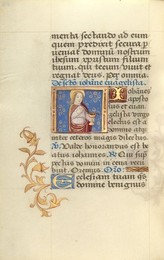 menta sectando ad eum
quem predixit secura p
veniat dominū nostrum
ihesum xpristum filium
tuum. qui tecum vivit et
regnat deus. Per omnia
De scō iohāne euāgelista.
Iohanes
aposto
lus et eu
angelista virgo
electus est a do
mino atqz
inter ceteros magis dilectus
Valde honorandus est be
atus iohannes. Qui sup
pectus domini in cena recu
buit. Oremus. Oro
Ecclesiam tuam qs
domine benignus